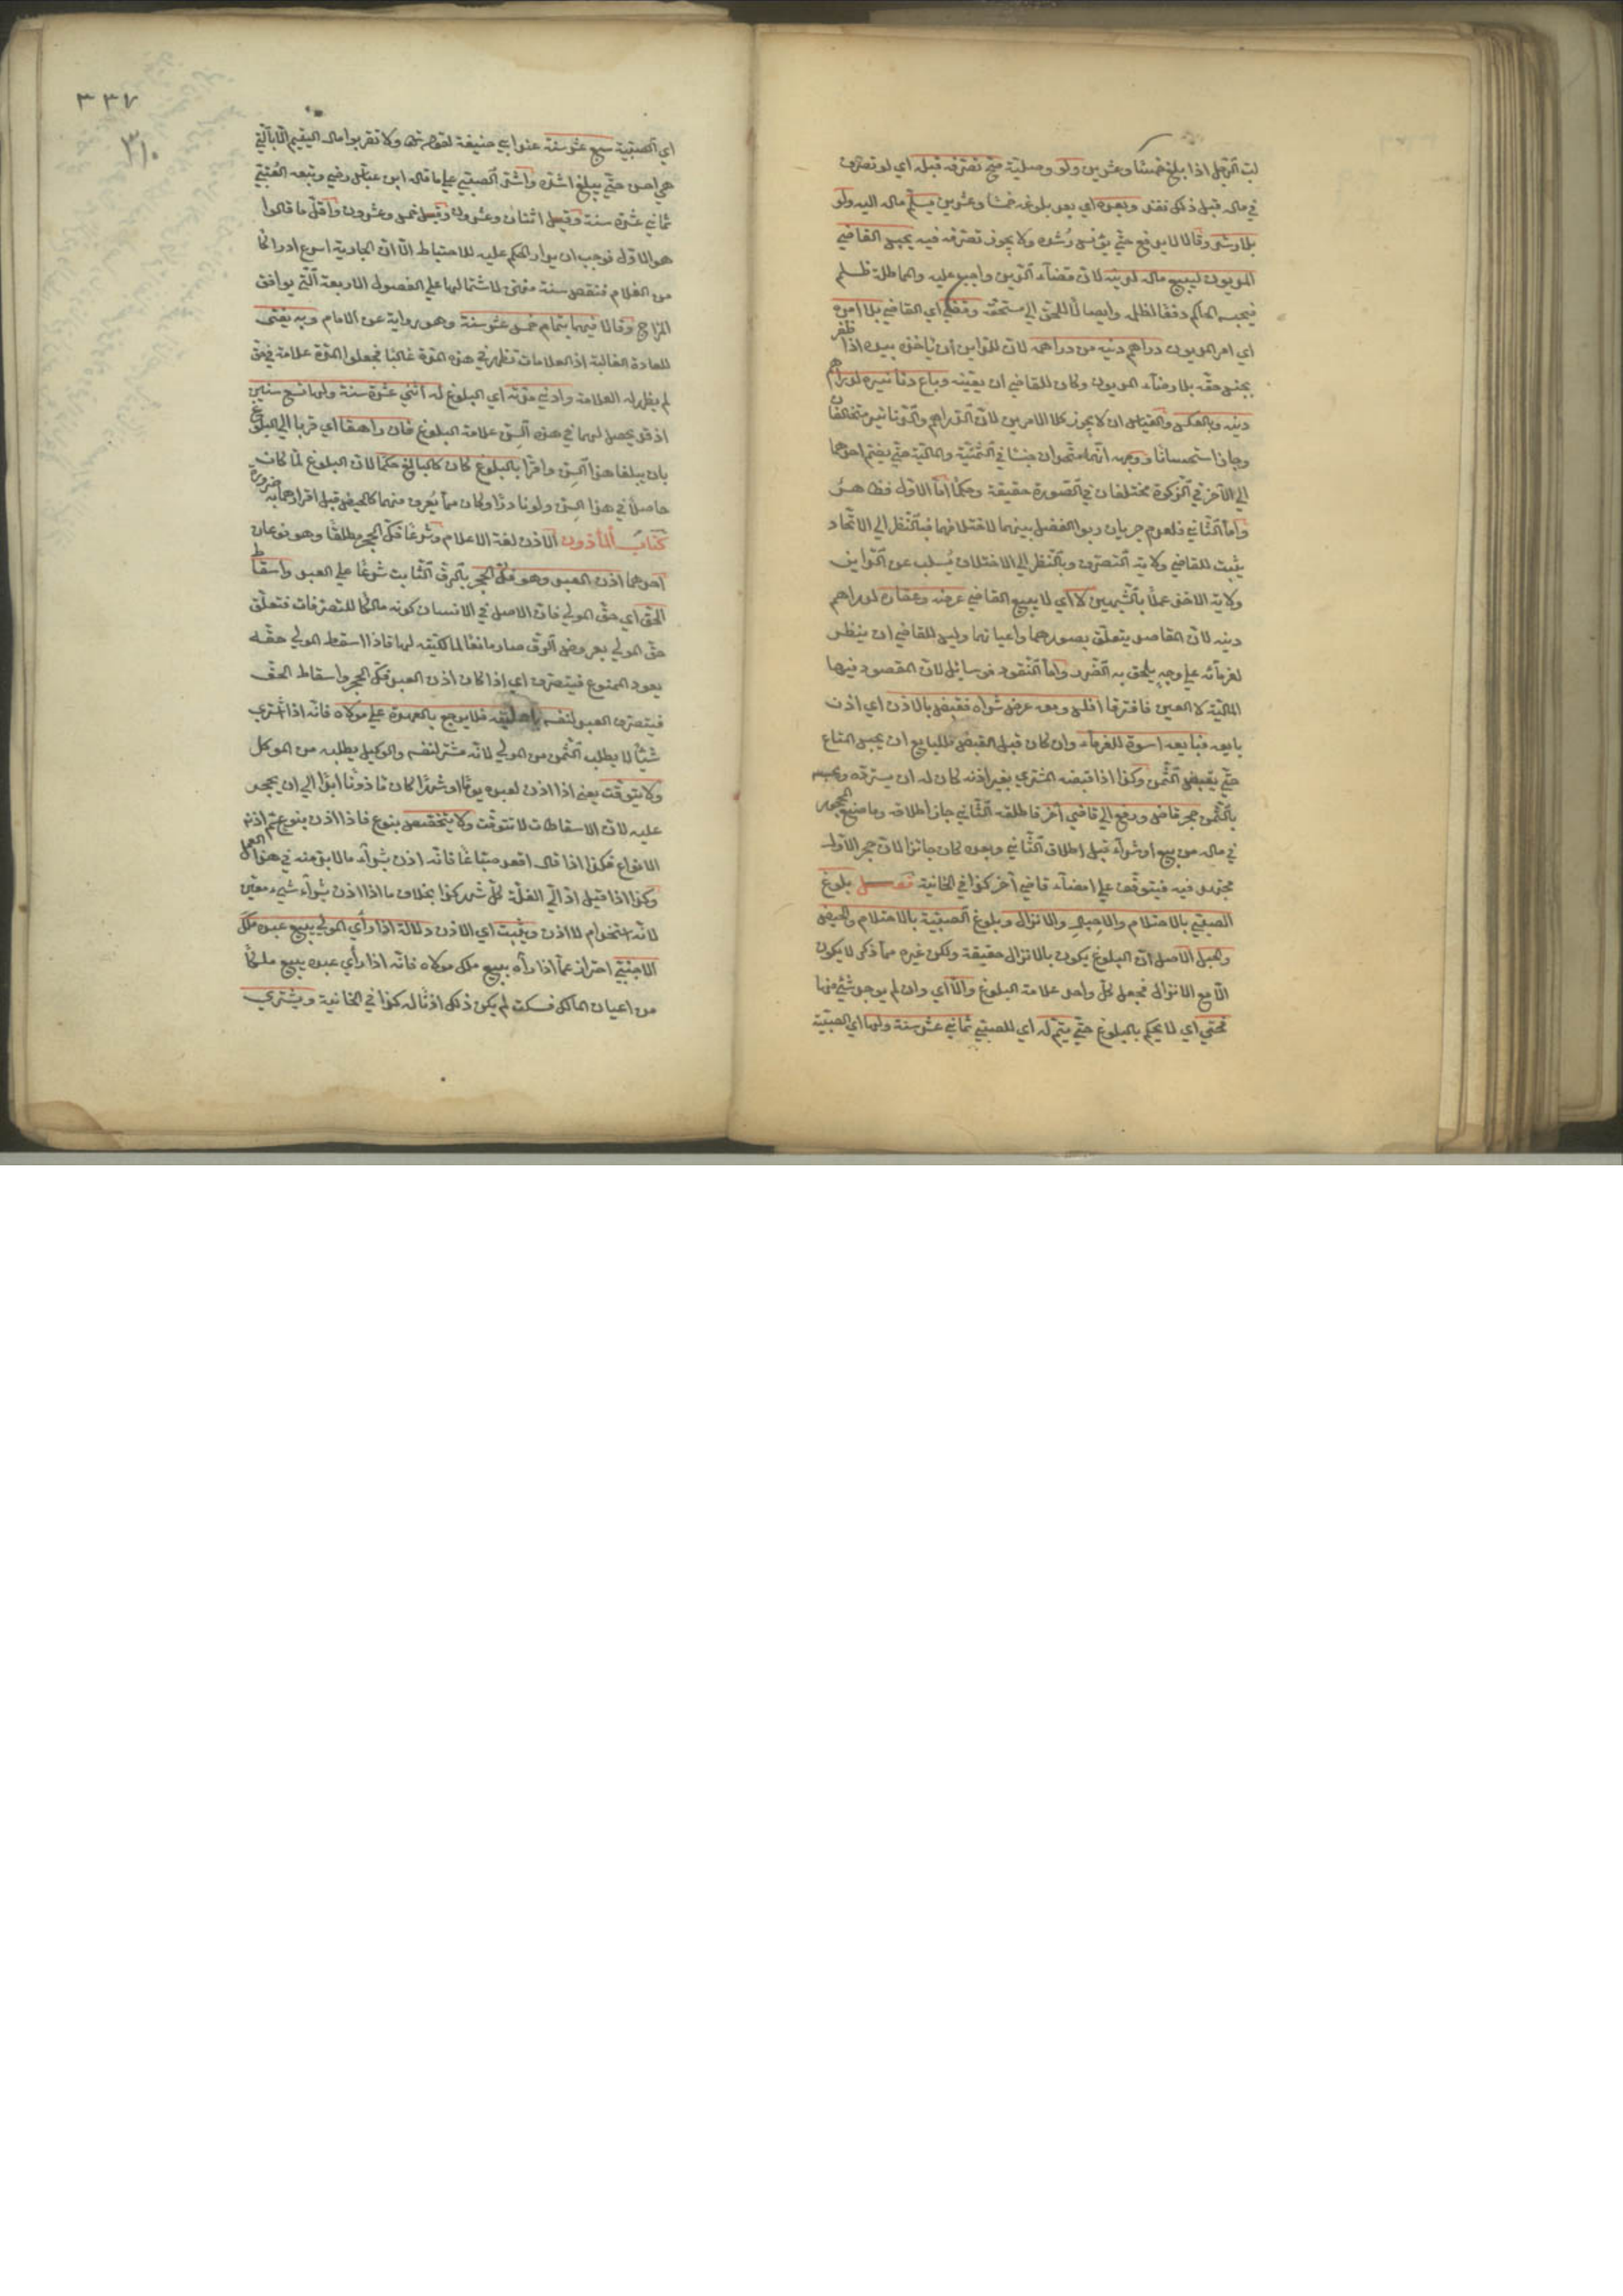 لب الرجل اذا بلغ خمسا وعشرين ولو وصليّة صح تصرفه قبله اي لو تصرف
في ماله قبل ذلك نفذ وبعده اي بعد بلوغه خمسا وعشرين يسلّم ماله اليه ولو
بلا رشد وقالا لا يدفع حتّي يؤنس رُشده ولا يجوز تصرفه فيه يحبس القاضي
المديون ليبيع ماله لدينه لانّ قضآء الدّين واجب عليه والمماطلة ظلم
فيحبسه الحاكم دفعًا لظلمه وايصالًا للحق الي مستحقّه وقضي اي القاضي بلا امره
اي امر المديون دراهم دينه من دراهمه لانّ للدّاين ان ياخذه بيده اذا ظفر
بجنس حقّه بلا رضآء المديون وكان للقاضي ان يعينه وباع دنانيره لدراهم
دينه وبالعكس والقياس ان لا يجوز كلا الامرين لانّ الدّراهم والدّنانير مختلفان
وجاز استحسانًا ووجهه انّهما متّحدان جنسًا في الثّمنيّة والماليّة حتّي يضم احدهما
الي الآخر في الزكوة مختلفان في الصّورة حقيقة وحكمًا امّا الاوّل فظاهر
وامّا الثّاني فلعدم جريان ربوا الفضل بينهما لاختلافهما فبالنّظر الي الاتّحاد
يثبت للقاضي ولاية التّصرّف وبالنّظر الي الاختلاف يُسلب عن الدّاين
ولاية الاخذ عملًا بالشّبهين لا اي لا يبيع القاضي عرضه وعقاره لدراهم
دينه لانّ المقاصد يتعلّق بصورهما واعيانهما وليس للقاضي ان ينظر
لغرمآئه علي وجه يلحق به الضّرر وامّا النّقود فوسائل لانّ المقصود فيها
الماليّة لا العين فافترقا افلس ومعه عرض شراه فقبض بالاذن اي اذن
بايعه فبايعه اسوة للغرمآء وان كان قبل القبض فللبايع ان يحبس المتاع
حتّي يقبض الثّمن وكذا اذا قبضه المشتري بغير اذنه كان له ان يستردّه ويحبسه
بالثّمن حجر قاض ورفع الي قاضي آخر فاطلقه الثّاني جاز اطلاقه وما صنع المحجور
في ماله من بيع او شرآء قبل اطلاق الثّاني وبعده كان جائزا لانّ حجر الاوّل
مجتهد فيه فيتوقّف علي امضآء قاضي آخر كذا في الخانية فصل بلوغ
الصبيّ بالاحتلام والاحبال والانزال وبلوغ الصبيّة بالاحتلام والحيض
والحبل الاصل انّ البلوغ يكون بالانزال حقيقة ولكن غيره ممّا ذكر لا يكون
الّا مع الانزال فجعل كلّ واحد علامة البلوغ والّا اي وان لم يوجد شئ منها
فحتّي اي لا يحكم بالبلوغ حتّي يتمّ له اي للصبيّ ثماني عشر سنة ولها اي الصبيّة
٣٣٧
٣١٠
اي الصبيّة سبع عشر سنة عند ابي حنيفة لقوله تعالي ولا تقربوا مال اليتيم الّا بالّتي
هي احسن حتّي يبلغ اشدّه واشدّ الصبيّ علي ما قاله ابن عبّاس رضي وتبعه القُتبيّ
ثماني عشرة سنة وقيل اثنان وعشرون وقيل خمس وعشرون واقلّ ما قالوا
هو الاوّل فوجب ان يدار الحكم عليه للاحتياط الّا انّ الجارية اسرع ادراكًا
من الغلام فنقص سنة منها لاشتمالها علي الفصول الاربعة الّتي يوافق
المزاج وقالا فيهما بتمام خمس عشر سنة وهو رواية عن الامام وبه يفتي
للعادة الغالبة اذ العلامات تظهر في هذه المدّة غالبًا فجعلوا المدّة علامة في حقّ
لم يظهر له العلامة وادني مدّته اي البلوغ له اثني عشرة سنة ولها تسع سنين
اذ قد يحصل لهما في هذه السّن علامة البلوغ فان راهقا اي قربا الي البلوغ
بان يبلغا هذا السّن واقرّا بالبلوغ كان كالبالغ حكمًا لانّ البلوغ لمّا كان
حاصلًا في هذا السّن ولو نادرًا وكان ممّا يُعرف منهما كالحيض قبل اقرارهما به ضرورة
كتاب المأذون الاذن لغة الاعلام وشرعًا فكّ الحجر مطلقًا وهو نوعان
احدهما اذن العبد وهو فكّ الحجر بالرّق الثّابت شرعًا علي العبد واسقاط
الحق اي حقّ المولي فانّ الاصل في الانسان كونه مالكًا للتصرفات فتعلّق
حقّ المولي بعروض الرّق صار مانعًا لمالكيّته لها فاذا اسقط المولي حقّه
يعود الممنوع فيتصرّف اي اذا كان اذن العبد فكّ الحجر واسقاط الحقّ
فيتصرّف العبد لنفسه باهليّته فلا يرجع بالعهدة علي مولاه فانّه اذا اشتري
شيئًا لا يطلب الثّمن من المولي لانّه مشتر لنفسه والوكيل يطلبه من الموكل
ولا يتوقّت يعني اذا اذن لعبده يومًا او شهرًا كان ماذونًا ابدًا الي ان يحجر
عليه لانّ الاسقاطات لا تتوقّت ولا يتخصّص بنوع فاذا اذن بنوع عمّ اذنه
الانواع فكذا اذا قال اقعد صبّاغًا فانّه اذن بشرآء ما لا بدّ منه في هذا العمل
وكذا اذا قيل ادّ الّي الغلّة كلّ شهر كذا بخلاف ما اذا اذن بشرآء شيء معيّن
لانّه استخدام لا اذن ويثبت اي الاذن دلالة اذا رأي المولي يبيع عبده ملك
الاجنبيّ احتراز عمّا اذا رآه يبيع ملك مولاه فانّه اذا رأي عبده يبيع ملكًا
من اعيان المالك فسكت لم يكن ذلك اذنًا له كذا في الخانية ويشتري